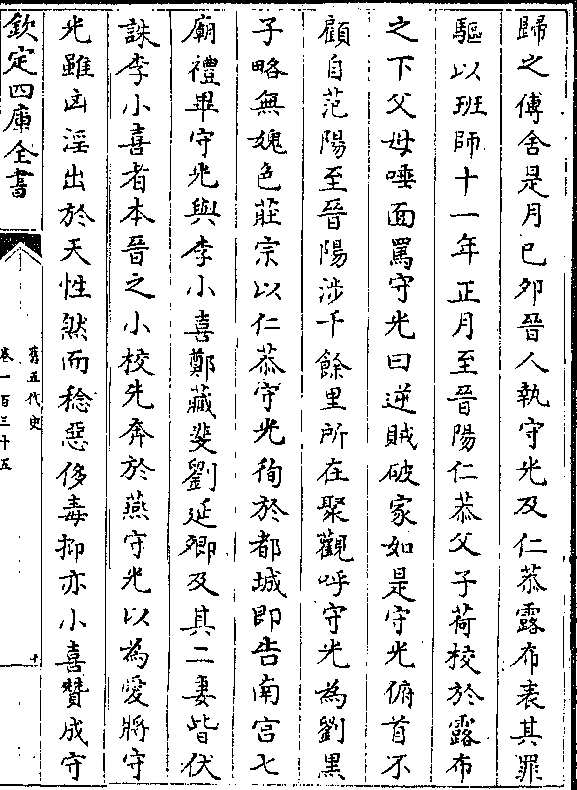 歸之傅舍是月己卯晉人執守光及仁恭露布表其罪
驅以班師十一年正月至晉陽仁恭父子荷校於露布
之下父母唾面罵守光曰逆賊破家如是守光俯首不
顧自范陽至晉陽涉千餘里所在聚觀呼守光為劉黑
子略無媿色莊宗以仁恭守光徇於都城即告南宫七
廟禮畢守光與李小喜鄭藏斐劉延卿及其二妻皆伏
誅李小喜者本晉之小校先奔於燕守光以為愛將守
光雖凶淫出於天性然而稔惡侈毒抑亦小喜贊成守
欽定四庫全書
舊五代史
卷一百三十五
十